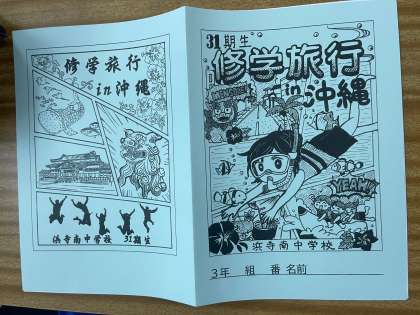 修学旅行
in沖縄
浜寺南中学校 31期生
31期生
修学旅行
in沖縄
YEAH!!
浜寺南中学校
3年 組 番 名前